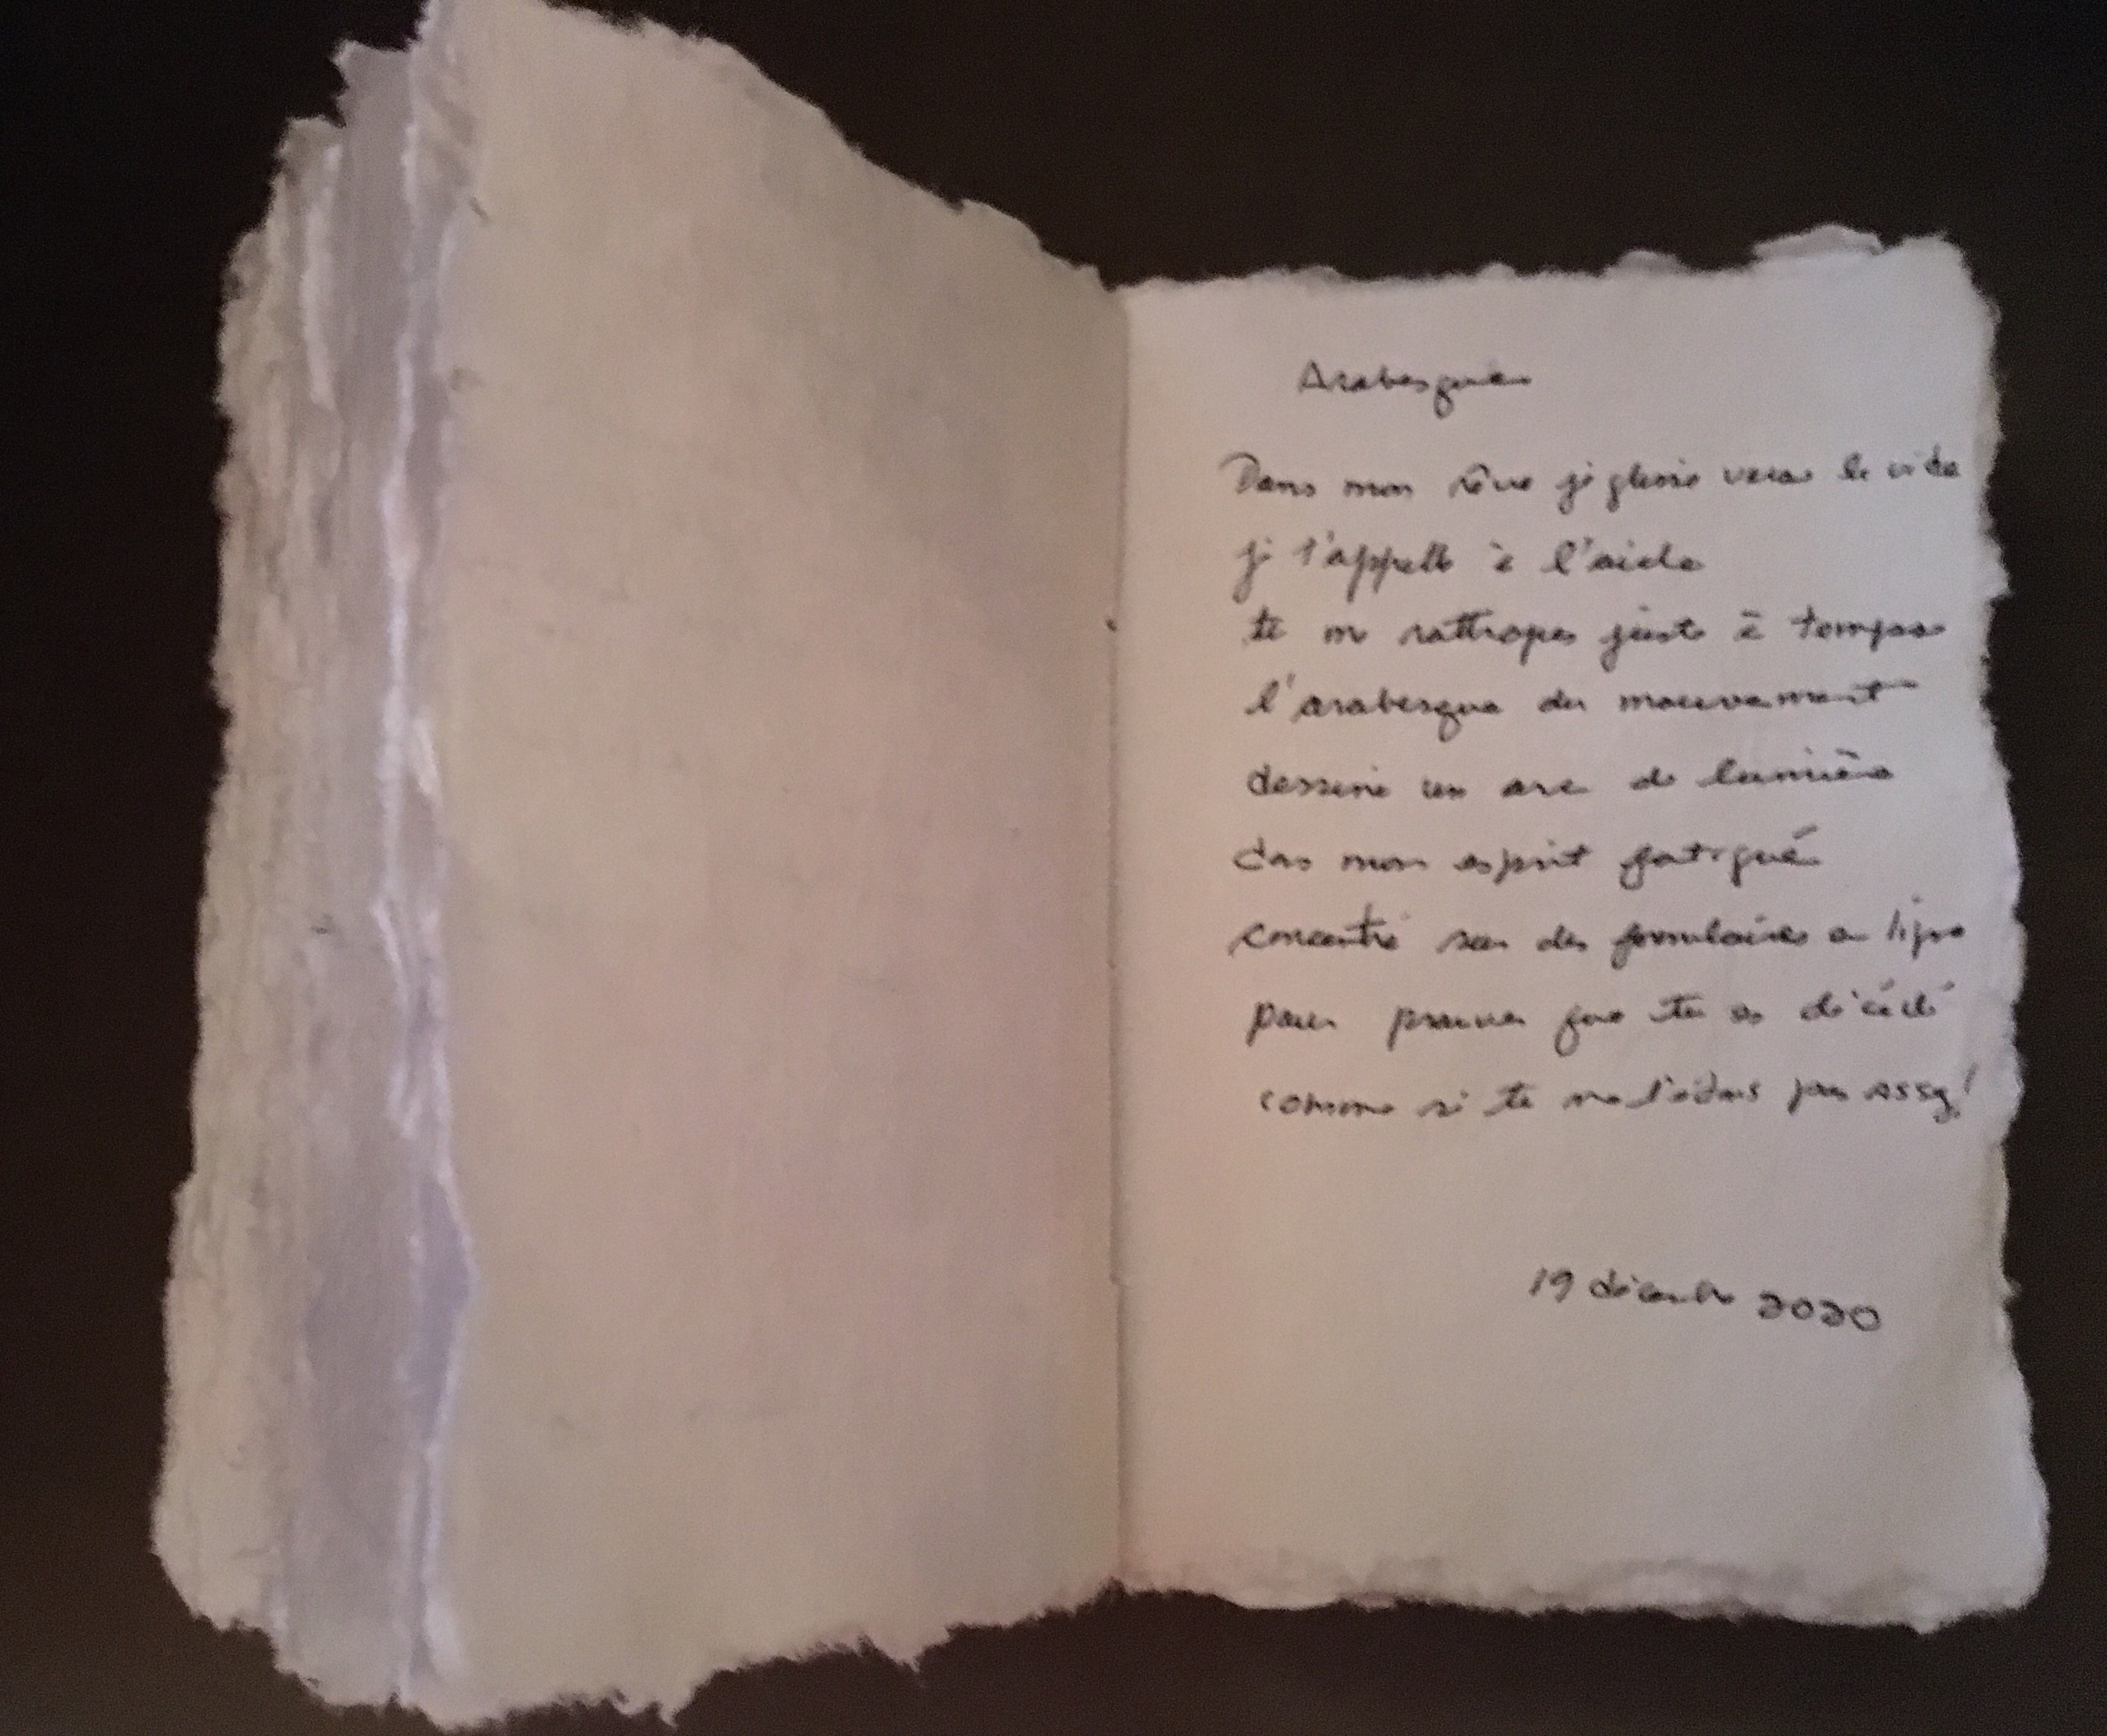 Arabesques
Dans mon rêve je glisse vers le vide
je t'appelle à l'aide
tu me rattrapes juste à temps
l'arabesque du mouvement
dessine un arc de lumière
dans mon esprit fatigué
concentré sur des formulaires en ligne
pour prouver que tu es décédé
comme si tu ne l'étais pas assez!
19 décembre 2020